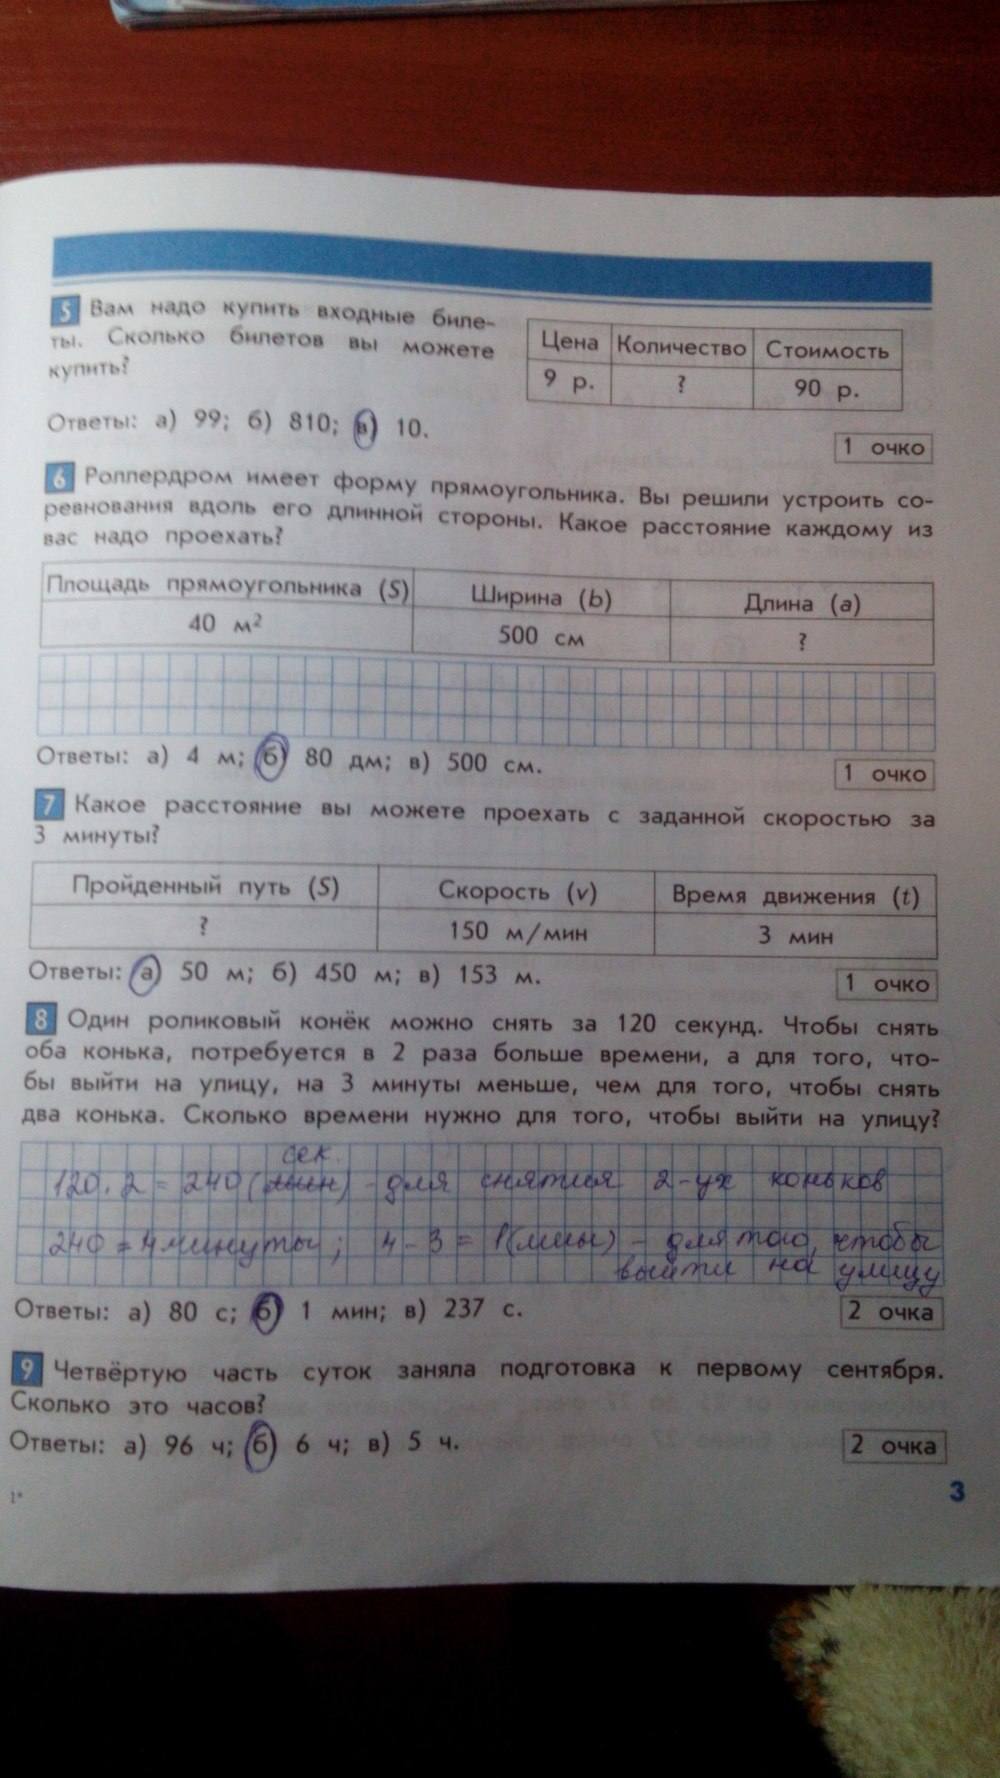 5 Вам надо купить входные биле-
ты. Сколько билетов вы можете
купить?
Цена Количество Стоимость
9 р. ? 90 р.
Ответы: а) 99; б) 810; в) 10.
1 очко
6 Роллердром имеет форму прямоугольника. Вы решили устроить со-
ревнования вдоль его длинной стороны. Какое расстояние каждому из
вас надо проехать?
Площадь прямоугольника (S) Ширина (b) Длина (a)
40 м² 500 см ?
Ответы: а) 4 м; б) 80 дм; в) 500 см.
1 очко
7 Какое расстояние вы можете проехать с заданной скоростью за
3 минуты?
Пройденный путь (S) Скорость (v) Время движения (t)
? 150 м/мин 3 мин
Ответы: а) 50 м; б) 450 м; в) 153 м.
1 очко
8 Один роликовый конёк можно снять за 120 секунд. Чтобы снять
оба конька, потребуется в 2 раза больше времени, а для того, что-
бы выйти на улицу, на 3 минуты меньше, чем для того, чтобы снять
два конька. Сколько времени нужно для того, чтобы выйти на улицу?
сек.
120 . 2 = 240 (мин) - для снятия 2-ух коньков
240 = 4 минуты; 4 - 3 = 1 (мин) - для того, чтобы
выйти на улицу
Ответы: а) 80 с; б) 1 мин; в) 237 с.
2 очка
9 Четвёртую часть суток заняла подготовка к первому сентября.
Сколько это часов?
Ответы: а) 96 ч; б) 6 ч; в) 5 ч.
2 очка
1*
3